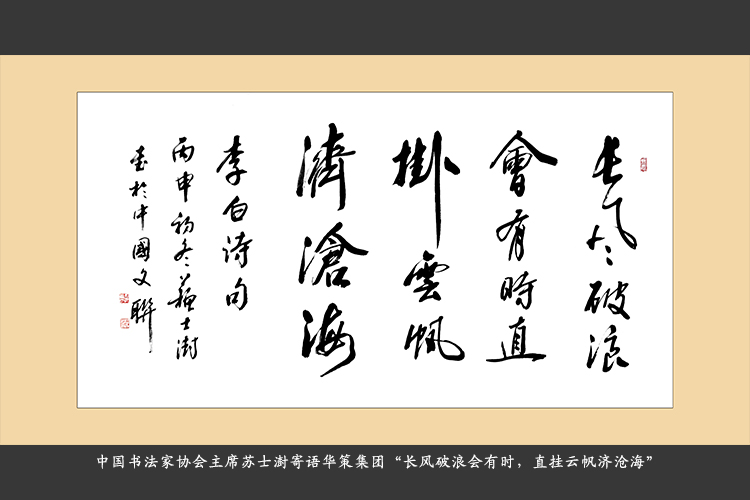 长风破浪
會有時直
掛雲帆
濟滄海
李白诗句
丙申初冬蘇士澍
書於中國文聯
中国书法家协会主席苏士澍寄语华策集团“长风破浪会有时，直挂云帆济沧海”